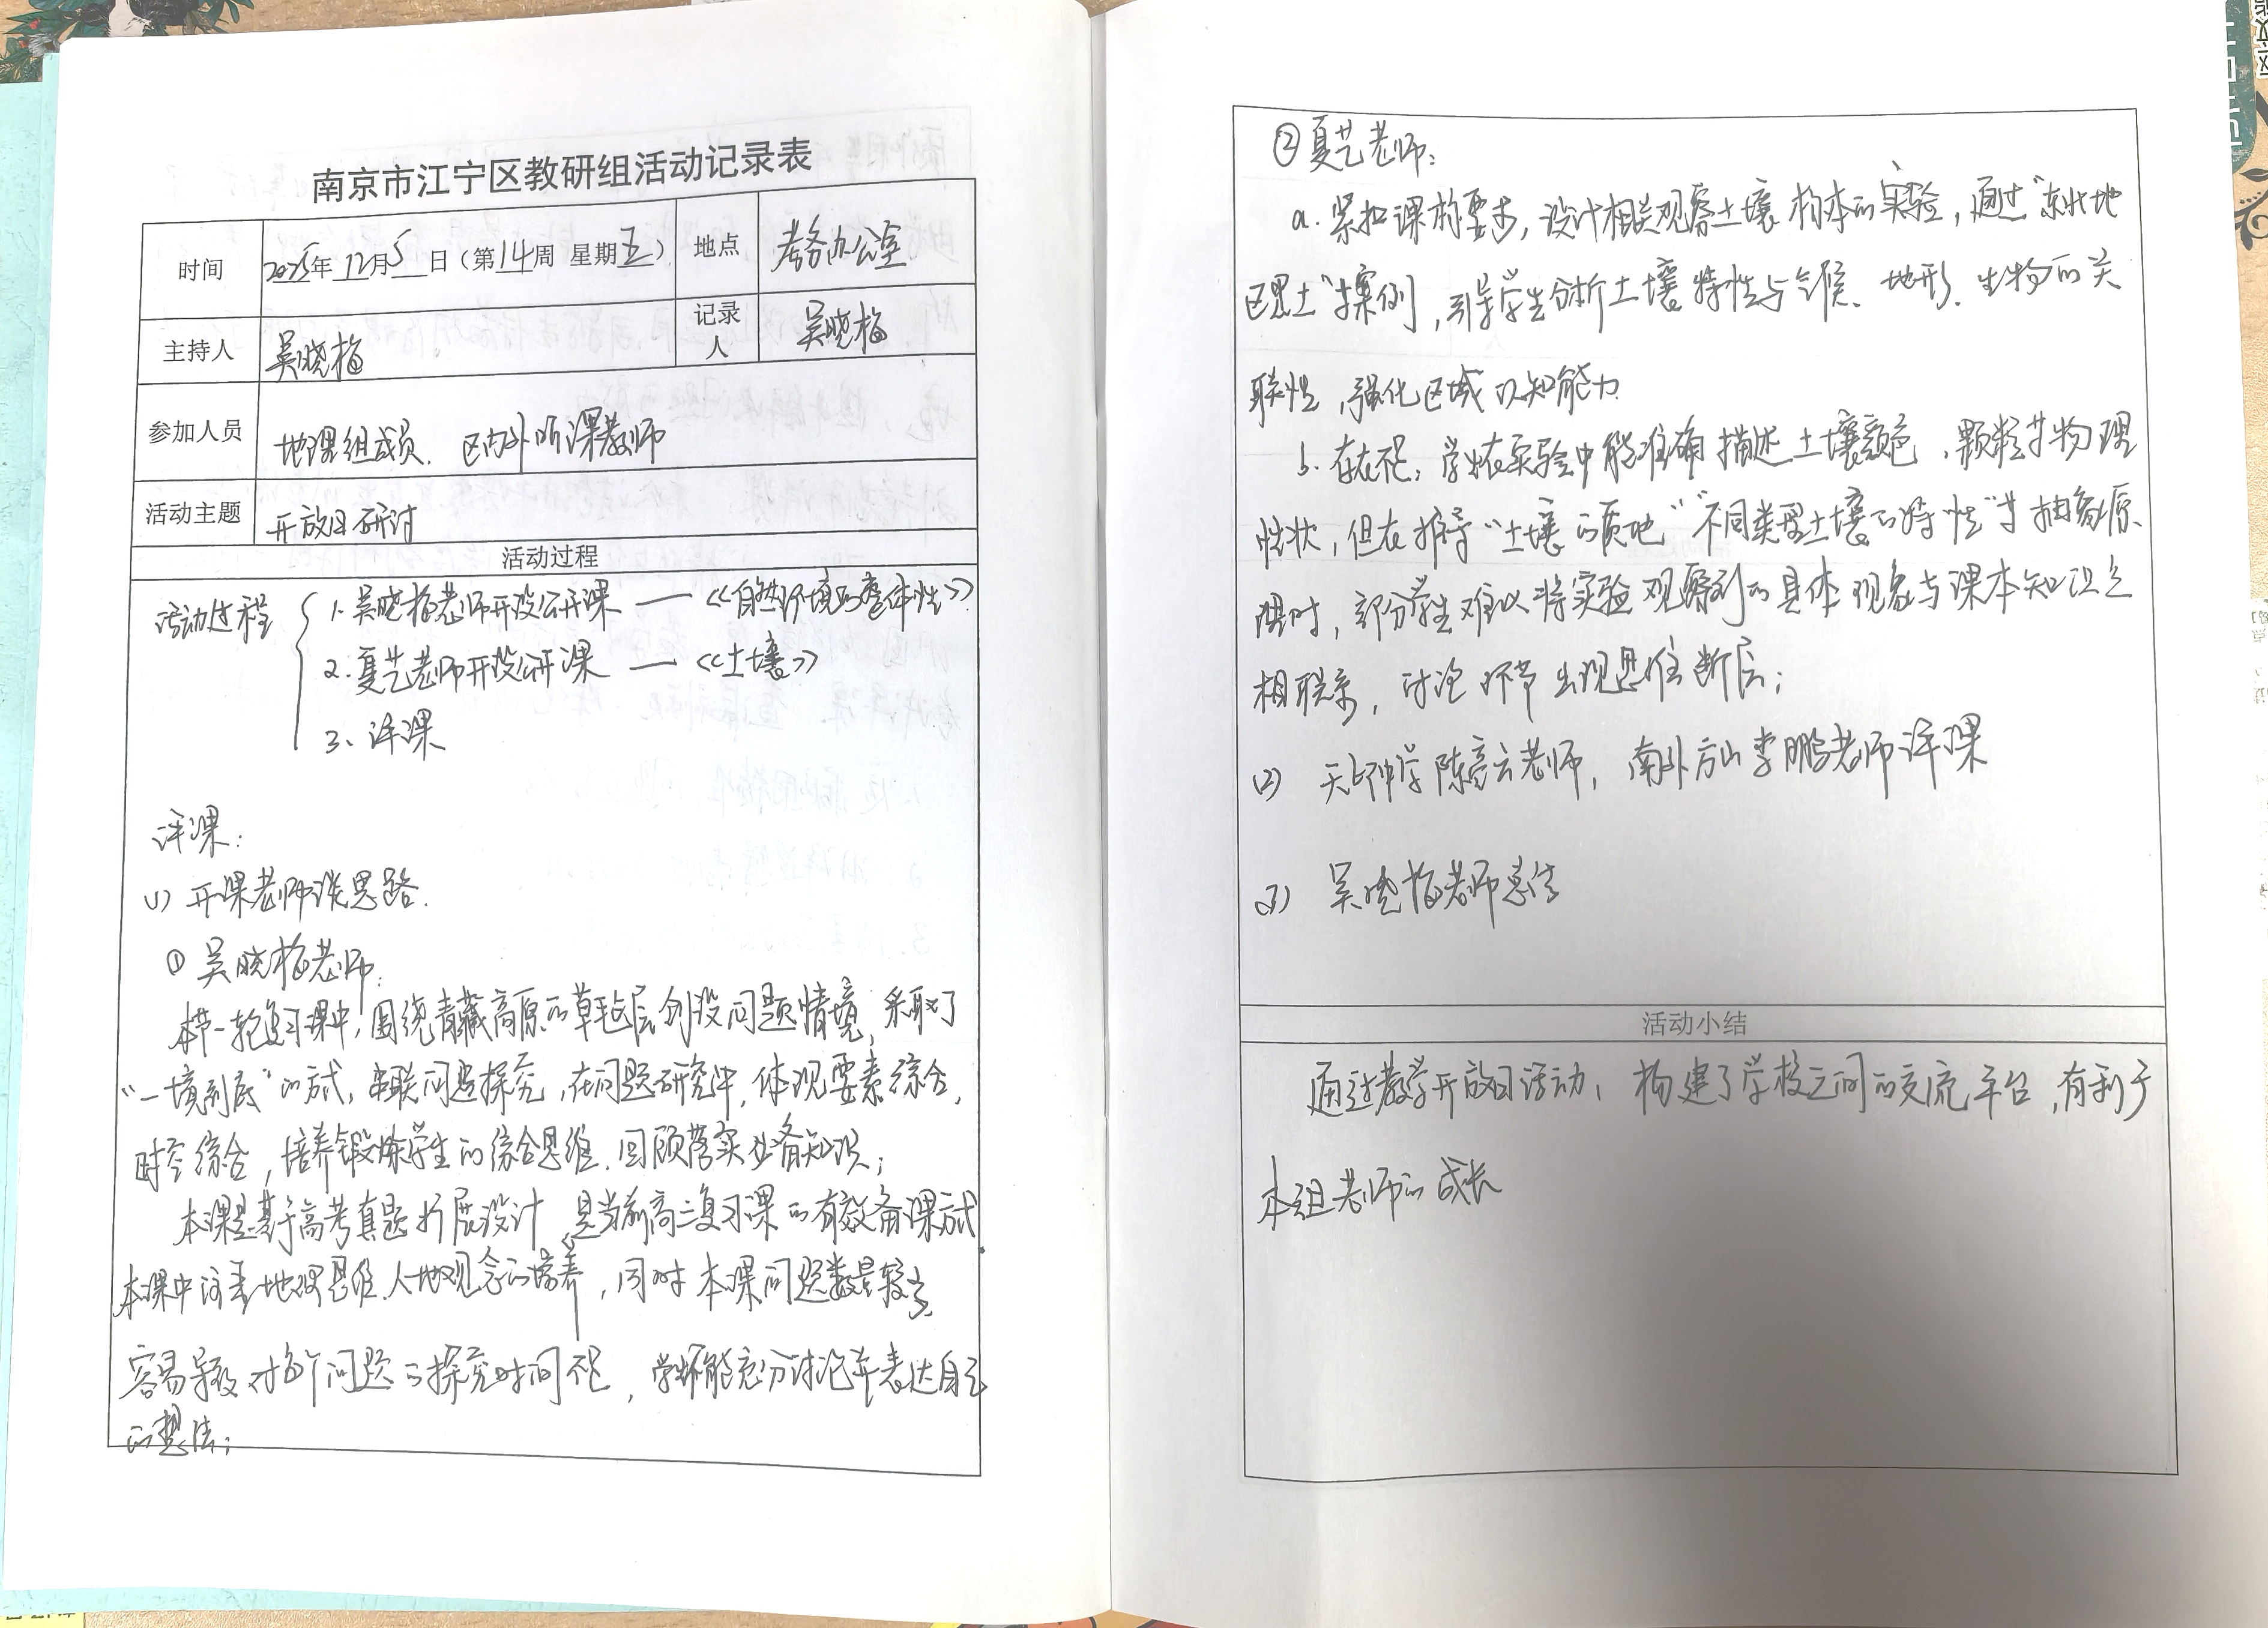 南京市江宁区教研组活动记录表
时间 2025年 12月5日（第14周 星期五） 地点 考务办公室
主持人 吴晓梅 记录人 吴晓梅
参加人员 地课组成员、区内外听课教师
活动主题 开放日研讨
活动过程
活动过程
1. 吴晓梅老师开设公开课 — 《自然环境的整体性》
2. 夏艺老师开设公开课 — 《土壤》
3、评课
评课：
(1) 开课老师谈思路.
① 吴晓梅老师:
本节一轮复习课中，围绕青藏高原的草毡层创设问题情境，采取了
“一境到底”的方式，串联问题探究，在问题研究中，体现要素综合，
时空综合，培养锻炼学生的综合思维.回顾落实必备知识；
本课是基于高考真题拓展设计，是当前高三复习课的有效备课方式.
本课中注重地理思维、人地观念的培养，同时本课问题数量较多，
容易导致对每个问题的探究时间不足，学生不能充分讨论并表达自己
的想法；
②夏艺老师：
a. 紧扣课标要求，设计相关观察土壤标本的实验，通过“东北地
区黑土”案例，引导学生分析土壤特性与气候、地形、生物的关
联性，强化区域认知能力.
b. 存在不足：学生在实验中能准确描述土壤颜色、颗粒等物理
性状，但在推导“土壤的质地”“不同类型土壤的特性”等抽象原
理时，部分学生难以将实验观察到的具体现象与课本知识之
相联系，讨论环节出现思维断层；
(2) 天印中学陈亮云老师，南外方山李鹏老师评课
(3) 吴晓梅老师总结
活动小结
通过教学开放日活动，构建了学校之间的交流平台，有利于
本组老师的成长